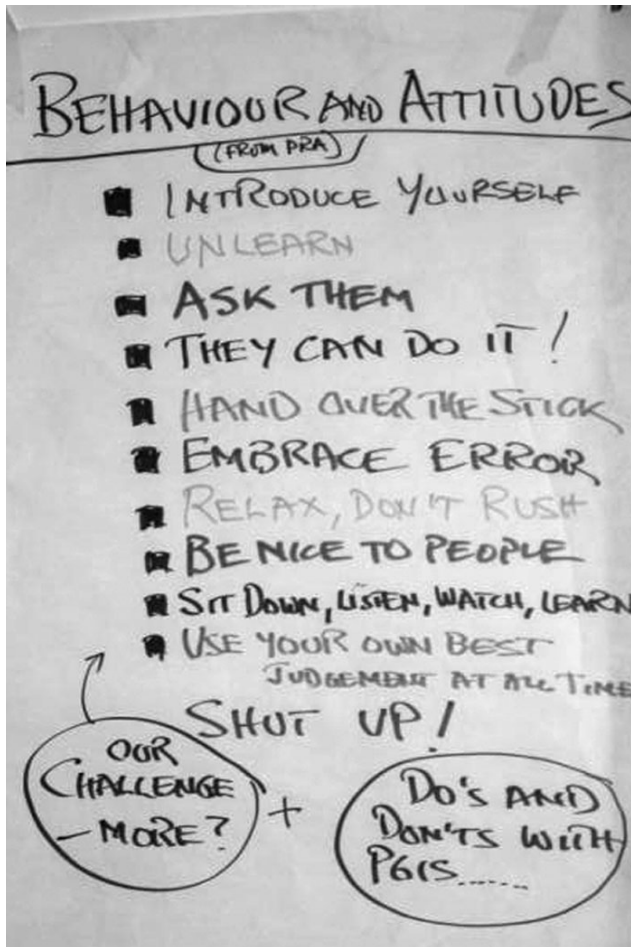 BEHAVIOUR AND ATTITUDES
(FROM PRA)
INTRODUCE YOURSELF
UNLEARN
ASK THEM
THEY CAN DO IT!
HAND OVER THE STICK
EMBRACE ERROR
RELAX, DON'T RUSH
BE NICE TO PEOPLE
SIT DOWN, LISTEN, WATCH, LEARN
USE YOUR OWN BEST
JUDGEMENT AT ALL TIME
SHUT UP!
OUR
CHALLENGE
– MORE?
+
DO'S AND
DON'TS WITH
PGIS......